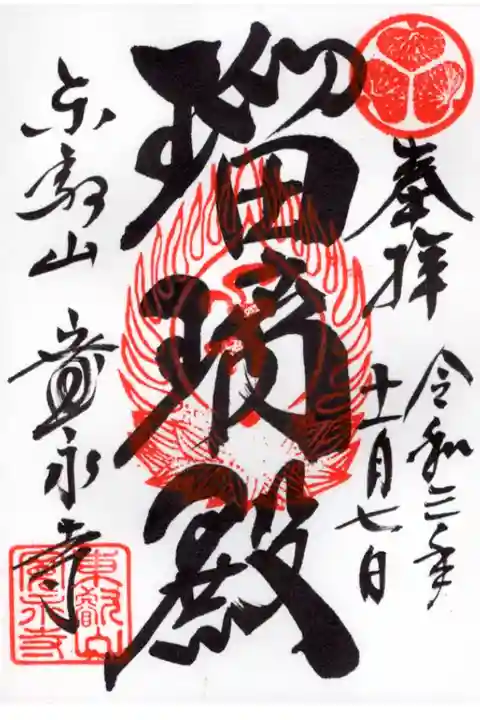 奉拝
令和三年
十一月七日
瑠璃殿
東叡山 寛永寺
東叡山
寛永寺